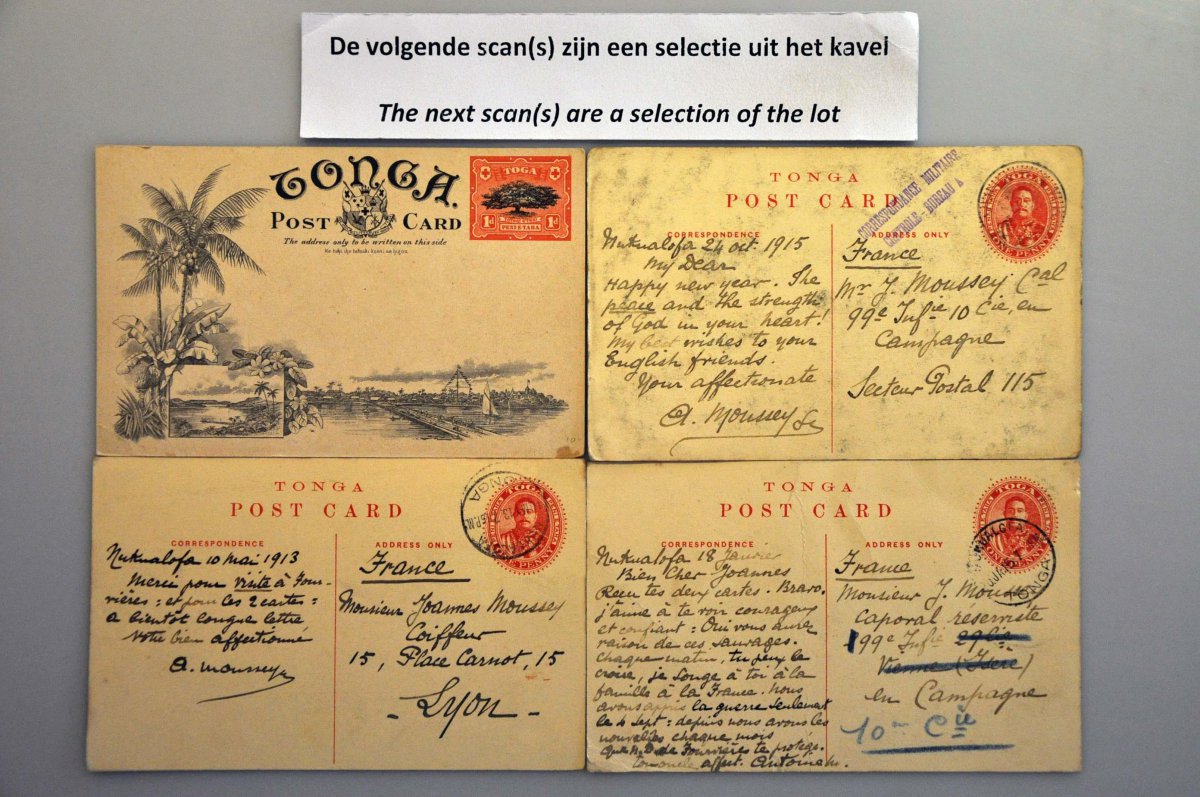 De volgende scan(s) zijn een selectie uit het kavel
The next scan(s) are a selection of the lot
TONGA.
POST CARD
The address only to be written on this side
TOGA
1d 1d
PENI E TAHA
TONGA
POST CARD
CORRESPONDANCE MILITAIRE
CONTROLE BUREAU A
TOGA
ONE PENNY
CORRESPONDENCE
ADDRESS ONLY
Nukualofa 24 oct. 1915
My Dear
Happy new year. The
peace and the strength
of God in your heart!
My best wishes to your
English friends.
Your affectionate
A. Moussey
France
Mr J. Moussey Cal
99e Infie 10 Cie, en
Campagne
Secteur Postal 115
TONGA
POST CARD
TONGA
TOGA
ONE PENNY
CORRESPONDENCE
ADDRESS ONLY
Nukualofa 10 mai 1913
Merci pour visite à Four-
vières: et pour les 2 cartes:
à bientôt longue lettre
Votre bien affectionné
A. Moussey
France
Monsieur Joannes Moussey
Coiffeur
15, Place Carnot, 15
- Lyon -
TONGA
POST CARD
TOGA
ONE PENNY
TONGA
CORRESPONDENCE
ADDRESS ONLY
Nukualofa 18 Janvier
Bien Cher Joannes
Reçu tes deux cartes. Bravo.
j'aime à te voir courageux
et confiant: Oui vous aurez
raison de ces sauvages.
chaque matin, tu peux le
croire, je songe à toi à la
famille à la France. Nous
avons appris la guerre seulement
le 4 Sept: depuis nous avons les
nouvelles chaque mois
Que N.D. de Fourvières te protège.
ton oncle affect. Antoine m.
France
Monsieur J. Mouss
Caporal réserviste
199e Infie 29 Cie
Vienne (Isère)
en Campagne
10me Cie